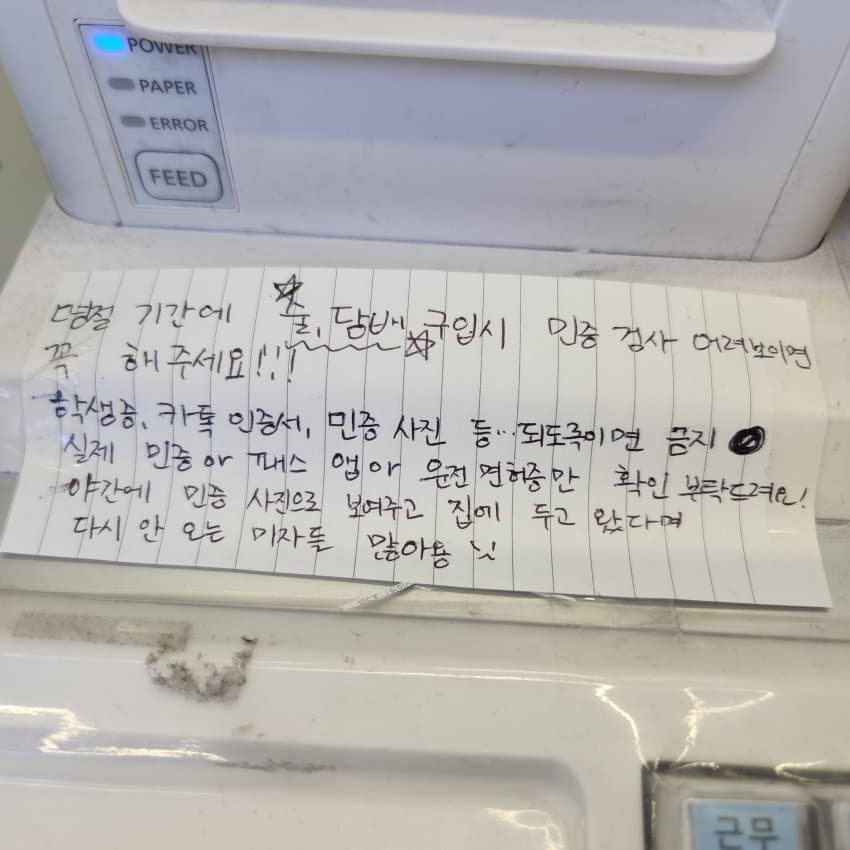 POWER
PAPER
ERROR
FEED
명절 기간에 술, 담배 구입시 민증 검사 어려보이면
꼭 해주세요!!!
학생증, 카톡 인증서, 민증 사진 등… 되도록이면 금지
실제 민증 or 패스 앱 or 운전면허증만 확인 부탁드려요!
야간에 민증 사진으로 보여주고 집에 두고 왔다며
다시 안 오는 미자들 많아용
근무